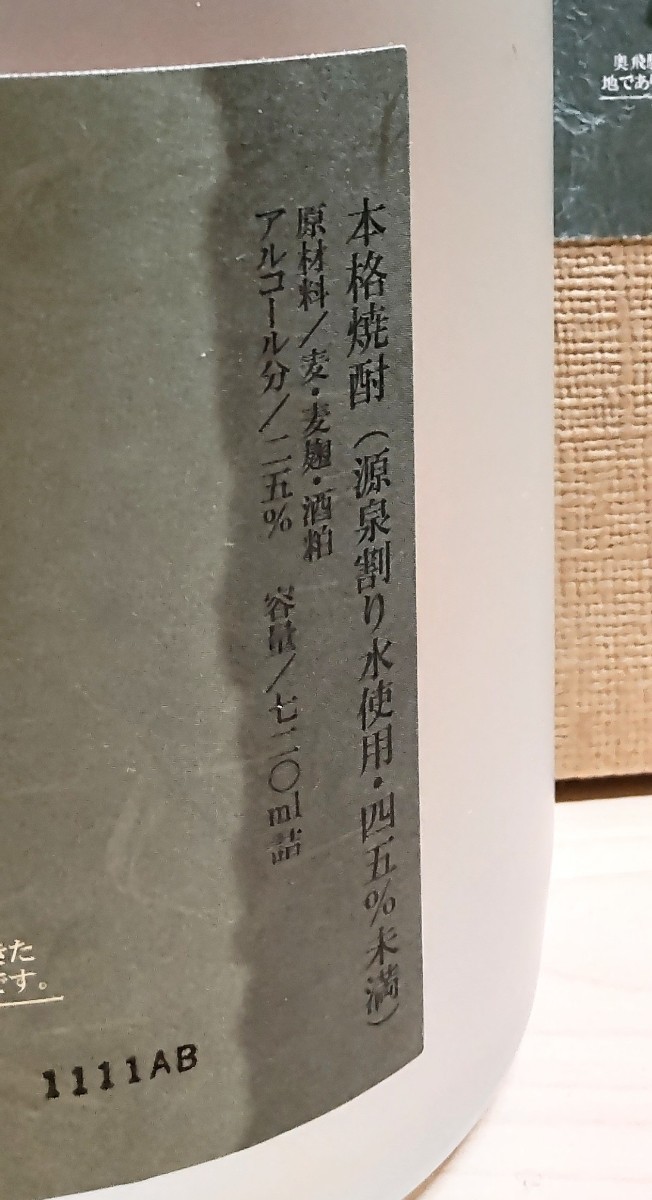 本格焼酎（源泉割り水使用・四五％未満）
原材料／麦・麦麹・酒粕
アルコール分／二五％　容量／七二〇ml詰
きた
です。
1111AB
奥飛騨
地であり